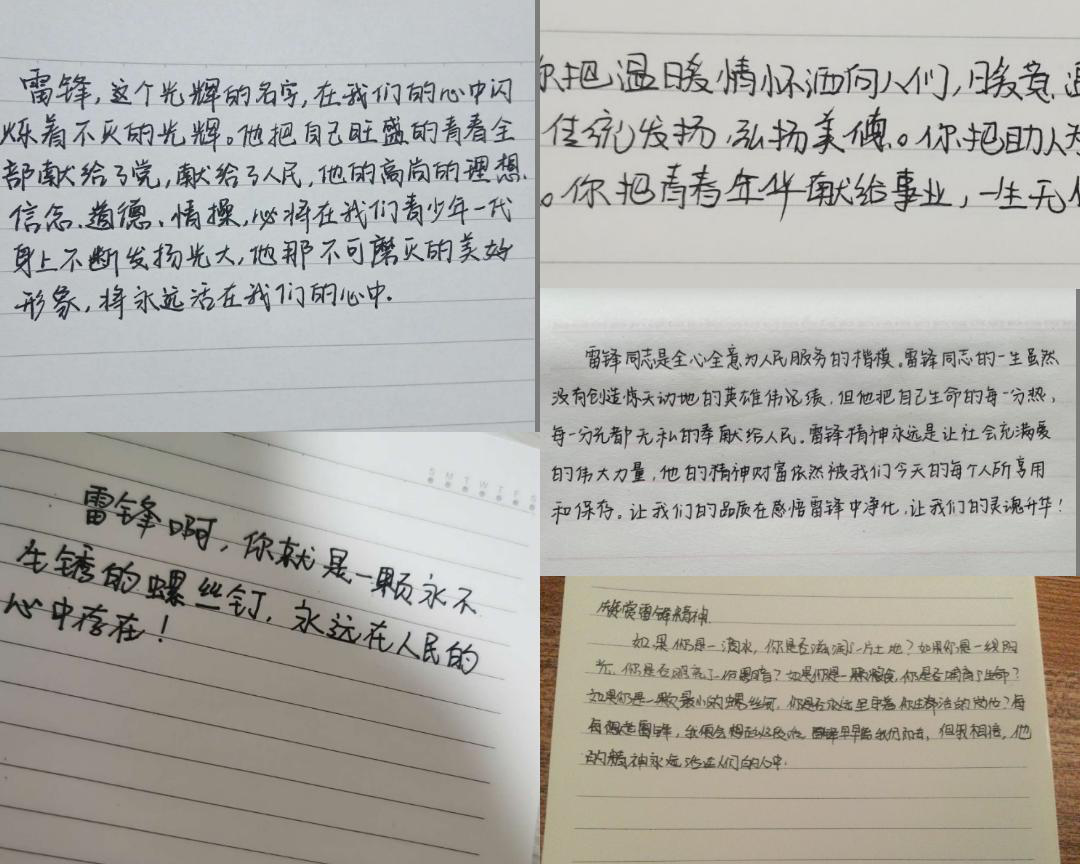 雷锋,这个光辉的名字,在我们的心中闪
烁着不灭的光辉。他把自己旺盛的青春全
部献给了党,献给了人民,他的高尚的理想、
信念、道德、情操,必将在我们青少年一代
身上不断发扬光大,他那不可磨灭的美好
形象,将永远活在我们的心中.
你把温暖情怀洒向人们,暖意
传统发扬,弘扬美德。你把助人为
。你把青春年华献给事业,一生无
雷锋同志是全心全意为人民服务的楷模。雷锋同志的一生虽然
没有创造惊天动地的英雄伟记绩,但他把自己生命的每一分热,
每一分光都无私的奉献给人民。雷锋精神永远是让社会充满爱
的伟大力量,他的精神财富依然被我们今天的每个人所享用
和保存。让我们的品质在感悟雷锋中净化,让我们的灵魂升华!
雷锋啊,你就是一颗永不
生锈的螺丝钉,永远在人民的
心中存在!
赞雷锋精神
如果你是一滴水,你是否滋润了一片土地?如果你是一线阳
光,你是否照亮了一份黑暗?如果你是一颗粮食,你是否哺育了生命?
如果你是一颗最小的螺丝钉,你是否永远坚守着你生活的岗位?每
每想起雷锋,我便会想起这段话。雷锋早早离我们而去,但我相信,他
的精神永远活在人们的心中.